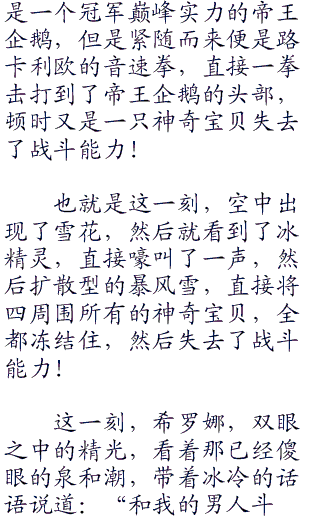 是一个冠军巅峰实力的帝王
企鹅，但是紧随而来便是路
卡利欧的音速拳，直接一拳
击打到了帝王企鹅的头部，
顿时又是一只神奇宝贝失去
了战斗能力！
也就是这一刻，空中出
现了雪花，然后就看到了冰
精灵，直接嚎叫了一声，然
后扩散型的暴风雪，直接将
四周围所有的神奇宝贝，全
都冻结住，然后失去了战斗
能力！
这一刻，希罗娜，双眼
之中的精光，看着那已经傻
眼的泉和潮，带着冰冷的话
语说道：“和我的男人斗